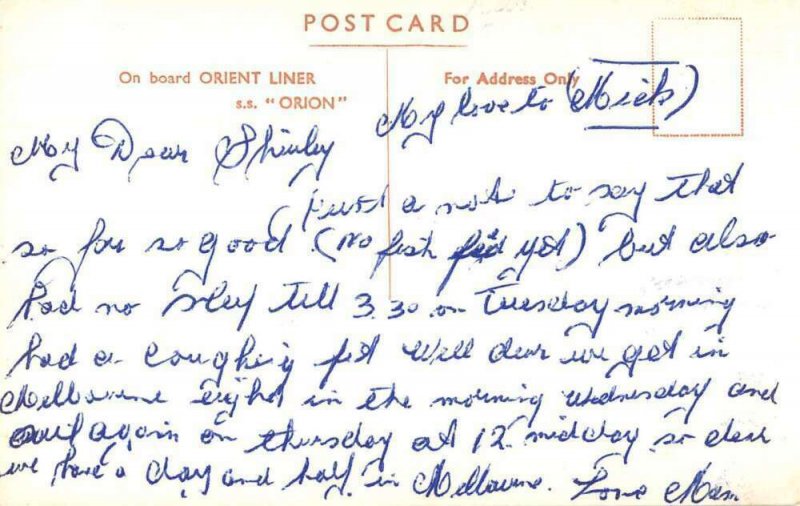 POST CARD
On board ORIENT LINER
s.s. "ORION"
For Address Only
My love to (Mick)
My Dear Shirley
Just a note to say that
so far so good (no fish fed yet) but also
had no sleep till 3.30 on Tuesday morning
had a coughing fit Well dear we get in
Melbourne eight in the morning Wednesday and
sail again on thursday at 12 midday so dear
we have a day and half in Melbourne. Love Mum